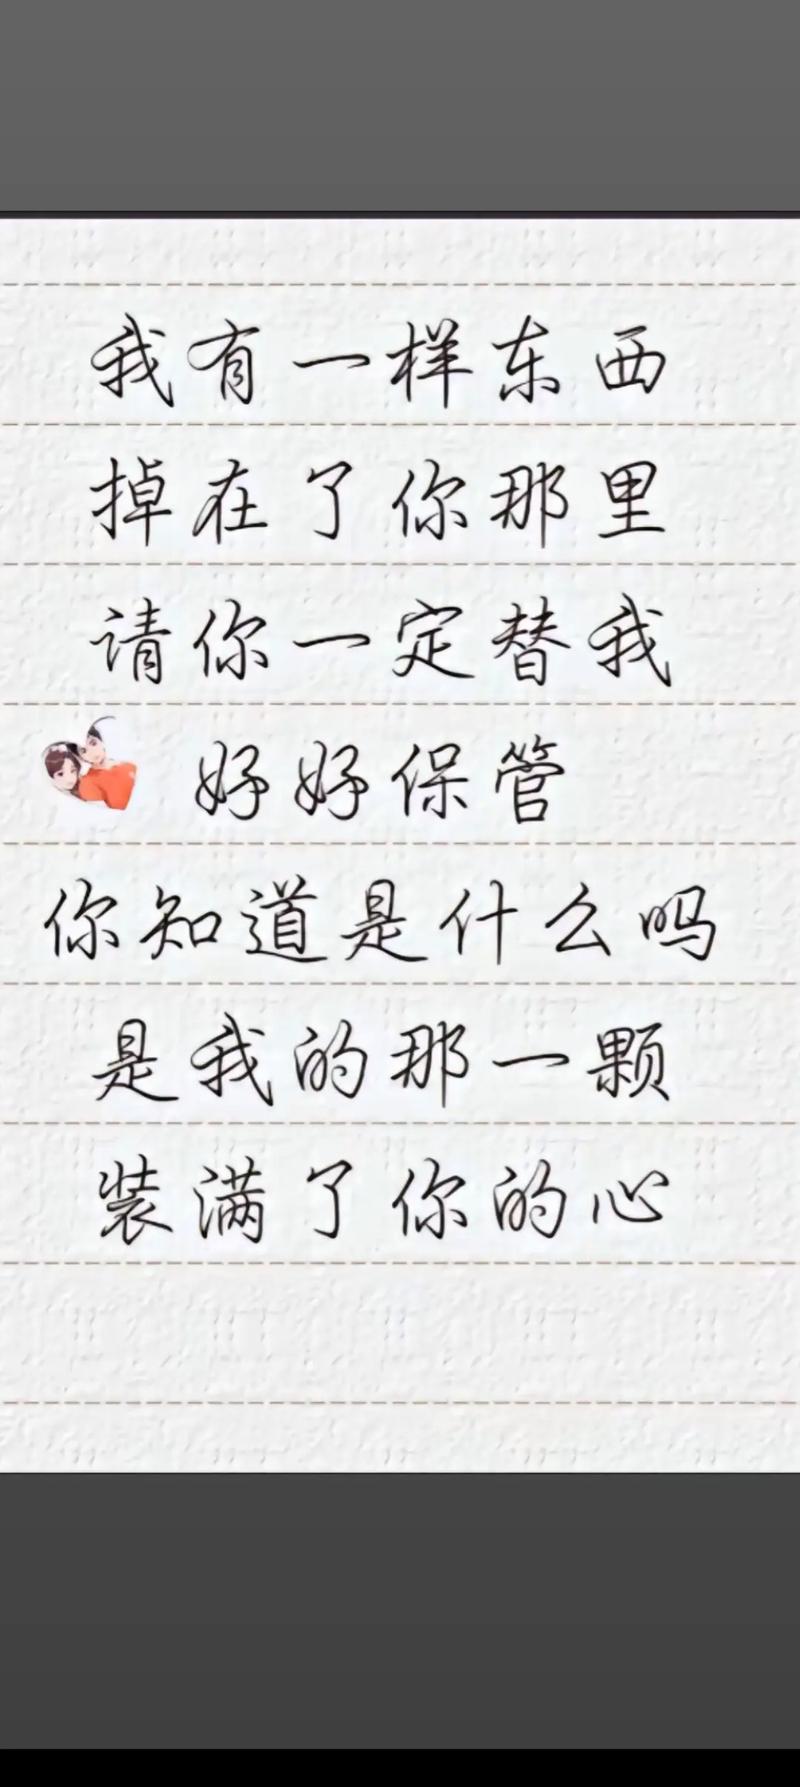 我有一样东西
掉在了你那里
请你一定替我
好好保管
你知道是什么吗
是我的那一颗
装满了你的心